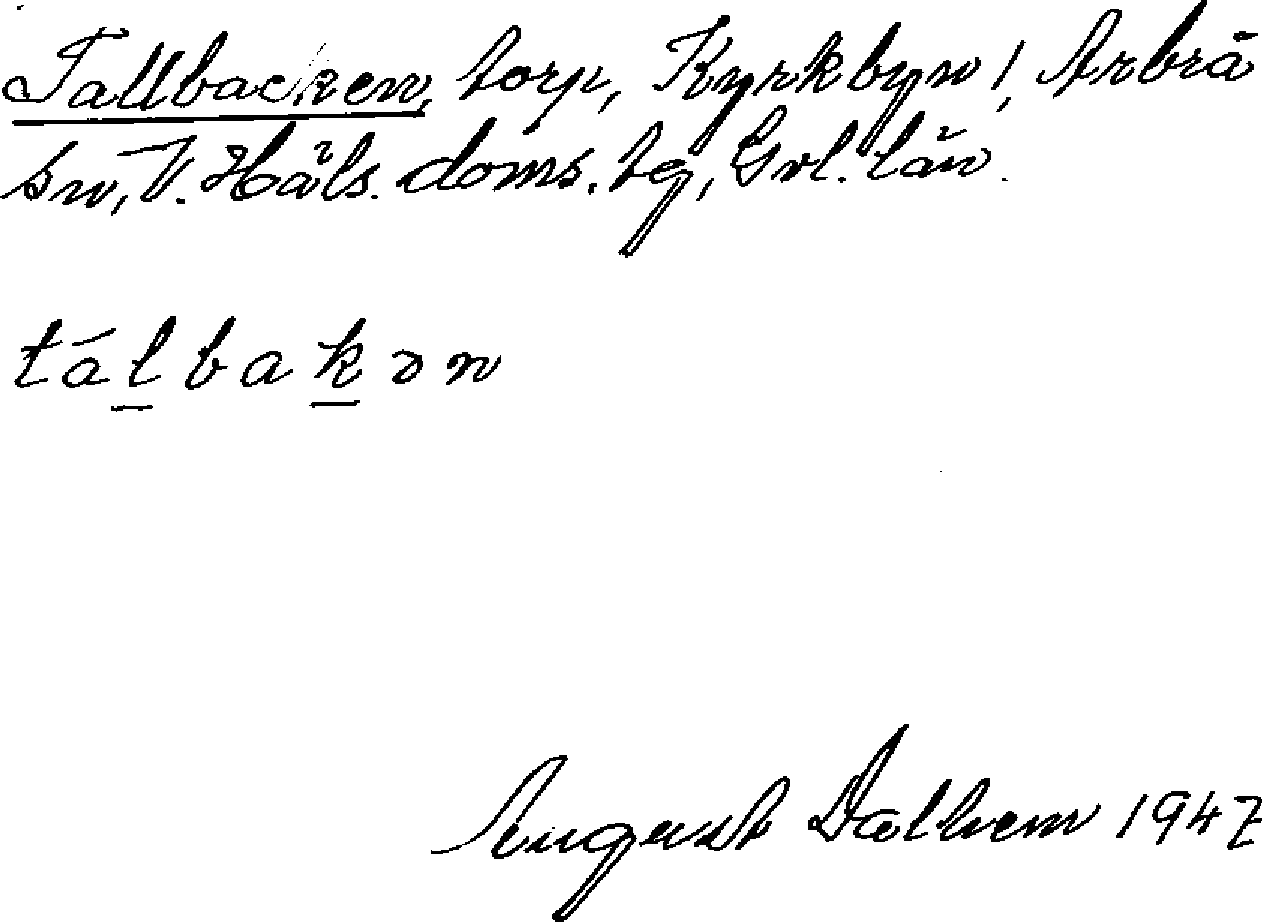 Tallbacken, torp, Kyrkbyn 1, Arbrå
sn, V. Häls. doms. tg, Gvl. län.
tálbakən
August Dalhem 1947